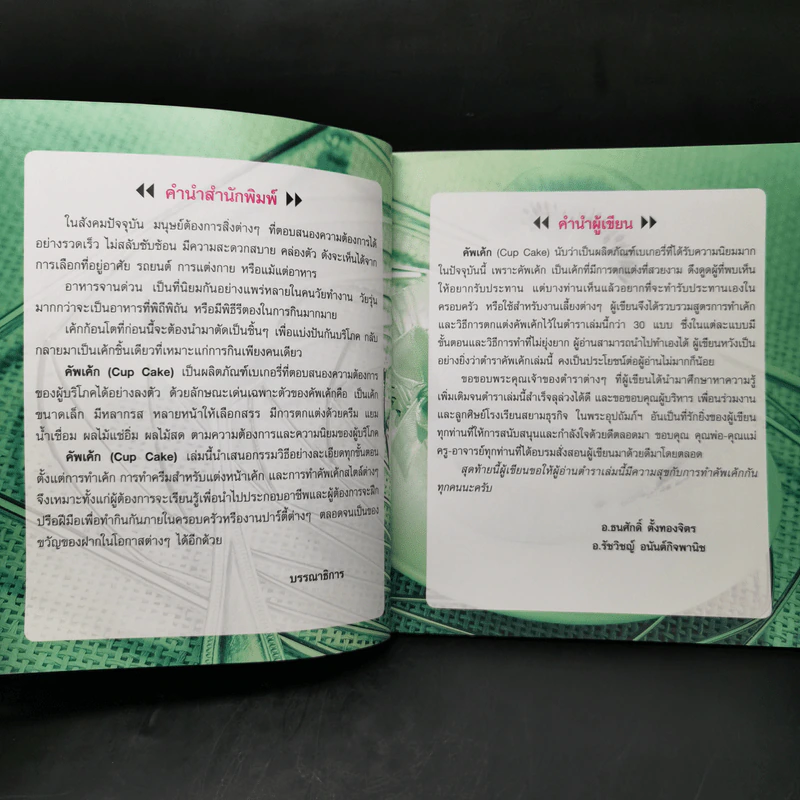 คำนำสำนักพิมพ์
ในสังคมปัจจุบัน มนุษย์ต้องการสิ่งต่างๆ ที่ตอบสนองความต้องการได้
อย่างรวดเร็ว ไม่สลับซับซ้อน มีความสะดวกสบาย คล่องตัว ดังจะเห็นได้จาก
การเลือกที่อยู่อาศัย รถยนต์ การแต่งกาย หรือแม้แต่อาหาร
อาหารจานด่วน เป็นที่นิยมกันอย่างแพร่หลายในคนวัยทำงาน วัยรุ่น
มากกว่าจะเป็นอาหารที่พิถีพิถัน หรือมีพิธีรีตองในการกินมากมาย
เค้กก้อนโตที่ก่อนนี้จะต้องนำมาตัดเป็นชิ้นๆ เพื่อแบ่งปันกันบริโภค กลับ
กลายมาเป็นเค้กชิ้นเดียวที่เหมาะแก่การกินเพียงคนเดียว
คัพเค้ก (Cup Cake) เป็นผลิตภัณฑ์เบเกอรี่ที่ตอบสนองความต้องการ
ของผู้บริโภคได้อย่างลงตัว ด้วยลักษณะเด่นเฉพาะตัวของคัพเค้กคือ เป็นเค้ก
ขนาดเล็ก มีหลากรส หลายหน้าให้เลือกสรร มีการตกแต่งด้วยครีม แยม
น้ำเชื่อม ผลไม้แช่อิ่ม ผลไม้สด ตามความต้องการและความนิยมของผู้บริโภค
คัพเค้ก (Cup Cake) เล่มนี้นำเสนอกรรมวิธีอย่างละเอียดทุกขั้นตอน
ตั้งแต่การทำเค้ก การทำครีมสำหรับแต่งหน้าเค้ก และการทำคัพเค้กสไตล์ต่างๆ
จึงเหมาะทั้งแก่ผู้ต้องการจะเรียนรู้เพื่อนำไปประกอบอาชีพและผู้ต้องการจะฝึก
ปรือฝีมือเพื่อทำกินกันภายในครอบครัวหรืองานปาร์ตี้ต่างๆ ตลอดจนเป็นของ
ขวัญของฝากในโอกาสต่างๆ ได้อีกด้วย
บรรณาธิการ
คำนำผู้เขียน
คัพเค้ก (Cup Cake) นับว่าเป็นผลิตภัณฑ์เบเกอรี่ที่ได้รับความนิยมมาก
ในปัจจุบันนี้ เพราะคัพเค้ก เป็นเค้กที่มีการตกแต่งที่สวยงาม ดึงดูดผู้ที่พบเห็น
ให้อยากรับประทาน แต่บางท่านเห็นแล้วอยากที่จะทำรับประทานเองใน
ครอบครัว หรือใช้สำหรับงานเลี้ยงต่างๆ ผู้เขียนจึงได้รวบรวมสูตรการทำเค้ก
และวิธีการตกแต่งคัพเค้กไว้ในตำราเล่มนี้กว่า 30 แบบ ซึ่งในแต่ละแบบมี
ขั้นตอนและวิธีการทำที่ไม่ยุ่งยาก ผู้อ่านสามารถนำไปทำเองได้ ผู้เขียนหวังเป็น
อย่างยิ่งว่าตำราคัพเค้กเล่มนี้ คงเป็นประโยชน์ต่อผู้อ่านไม่มากก็น้อย
ขอขอบพระคุณเจ้าของตำราต่างๆ ที่ผู้เขียนได้นำมาศึกษาหาความรู้
เพิ่มเติมจนตำราเล่มนี้สำเร็จลุล่วงได้ดี และขอขอบคุณผู้บริหาร เพื่อนร่วมงาน
และลูกศิษย์โรงเรียนสยามธุรกิจ ในพระอุปถัมภ์ฯ อันเป็นที่รักยิ่งของผู้เขียน
ทุกท่านที่ให้การสนับสนุนและกำลังใจด้วยดีตลอดมา ขอบคุณ คุณพ่อ-คุณแม่
ครู-อาจารย์ทุกท่านที่ได้อบรมสั่งสอนผู้เขียนมาด้วยดีมาโดยตลอด
สุดท้ายนี้ผู้เขียนขอให้ผู้อ่านตำราเล่มนี้มีความสุขกับการทำคัพเค้กกัน
ทุกคนนะครับ
อ.ธนศักดิ์ ตั้งทองจิตร
อ.รัชวิชญ์ อนันต์กิจพานิช